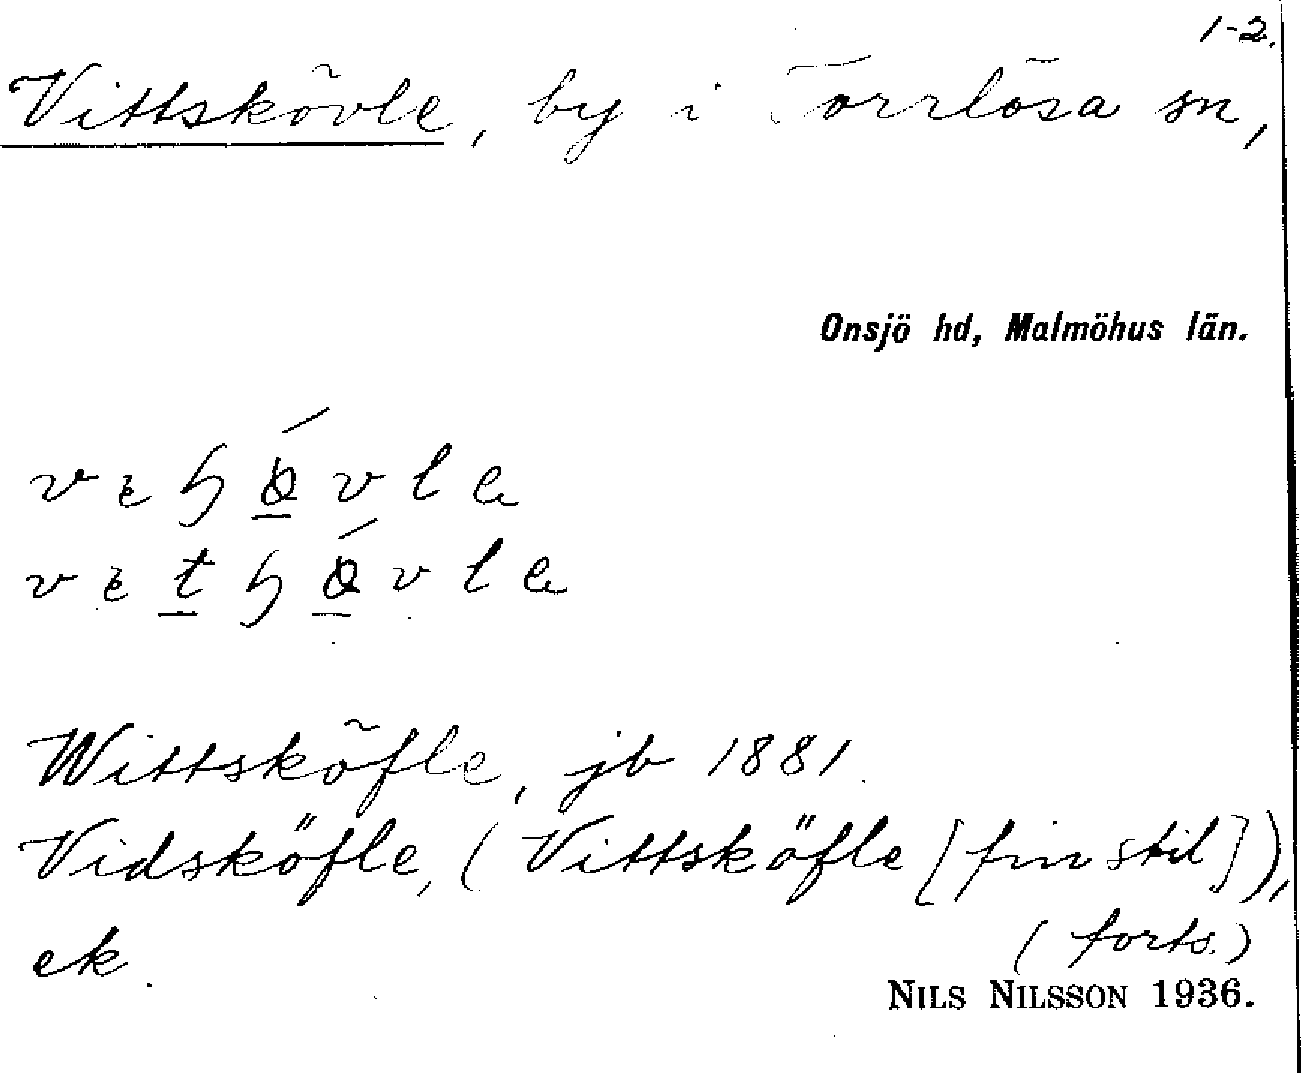 1-2.
Vittskövle, by i Torrlösa sn,
Onsjö hd, Malmöhus län.
Wittsköfle, jb 1881.
Vidsköfle, (Vittsköfle [fin stil]),
ek.
(forts.)
NILS NILSSON 1936.